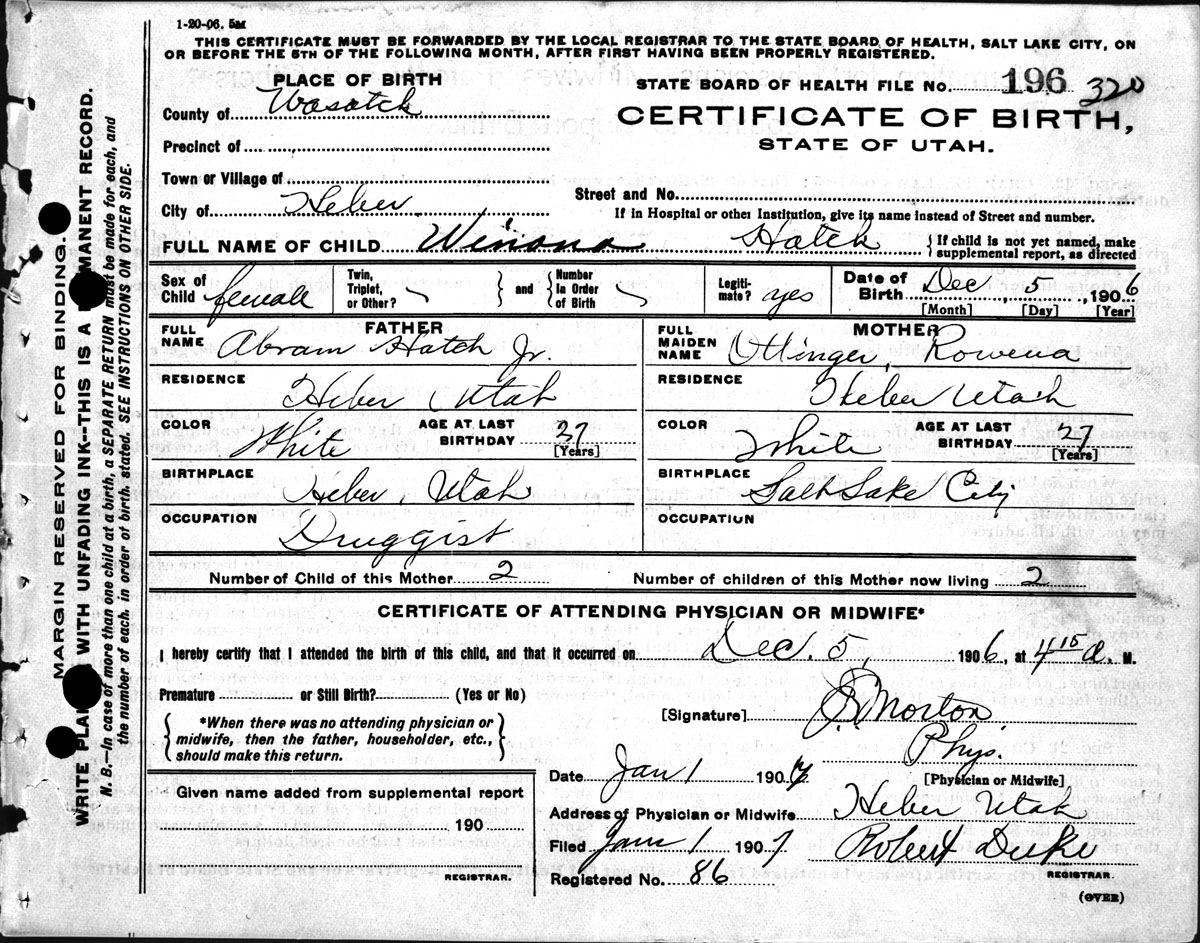 1-20-06. 5M
THIS CERTIFICATE MUST BE FORWARDED BY THE LOCAL REGISTRAR TO THE STATE BOARD OF HEALTH, SALT LAKE CITY, ON
OR BEFORE THE 5TH OF THE FOLLOWING MONTH, AFTER FIRST HAVING BEEN PROPERLY REGISTERED.
PLACE OF BIRTH
STATE BOARD OF HEALTH FILE No. 196 320
County of Wasatch
CERTIFICATE OF BIRTH,
Precinct of
STATE OF UTAH.
Town or Village of
Street and No.
City of Heber
If in Hospital or other Institution, give its name instead of Street and number.
FULL NAME OF CHILD Winona Hatch {If child is not yet named, make
supplemental report, as directed
Sex of Child female
Twin, Triplet, or Other? } and { Number In Order of Birth
Legiti-mate? yes
Date of Birth Dec 5, 1906
[Month] [Day] [Year]
FATHER
FULL NAME Abram Hatch Jr.
RESIDENCE Heber Utah
COLOR White AGE AT LAST BIRTHDAY 27
[Years]
BIRTHPLACE Heber, Utah
OCCUPATION Druggist
MOTHER
FULL MAIDEN NAME Ottinger, Rowena
RESIDENCE Heber Utah
COLOR White AGE AT LAST BIRTHDAY 27
[Years]
BIRTHPLACE Salt Lake City
OCCUPATION
Number of Child of this Mother 2 Number of children of this Mother now living 2
CERTIFICATE OF ATTENDING PHYSICIAN OR MIDWIFE*
I hereby certify that I attended the birth of this child, and that it occurred on Dec. 5, 1906, at 4 15 a. M.
Premature or Still Birth? (Yes or No)
{*When there was no attending physician or
midwife, then the father, householder, etc.,
should make this return.}
[Signature] Morton
Phys.
[Physician or Midwife]
Date Jan 1 1907
Address of Physician or Midwife Heber Utah
Filed Jan 1 1907 Robert Duke
REGISTRAR.
Registered No. 86
(OVER)
Given name added from supplemental report
190
REGISTRAR.
MARGIN RESERVED FOR BINDING.
WRITE PLAI WITH UNFADING INK--THIS IS A MANENT RECORD.
N. B.—In case of more than one child at a birth, a SEPARATE RETURN must be made for each, and
the number of each, in order of birth, stated. SEE INSTRUCTIONS ON OTHER SIDE.